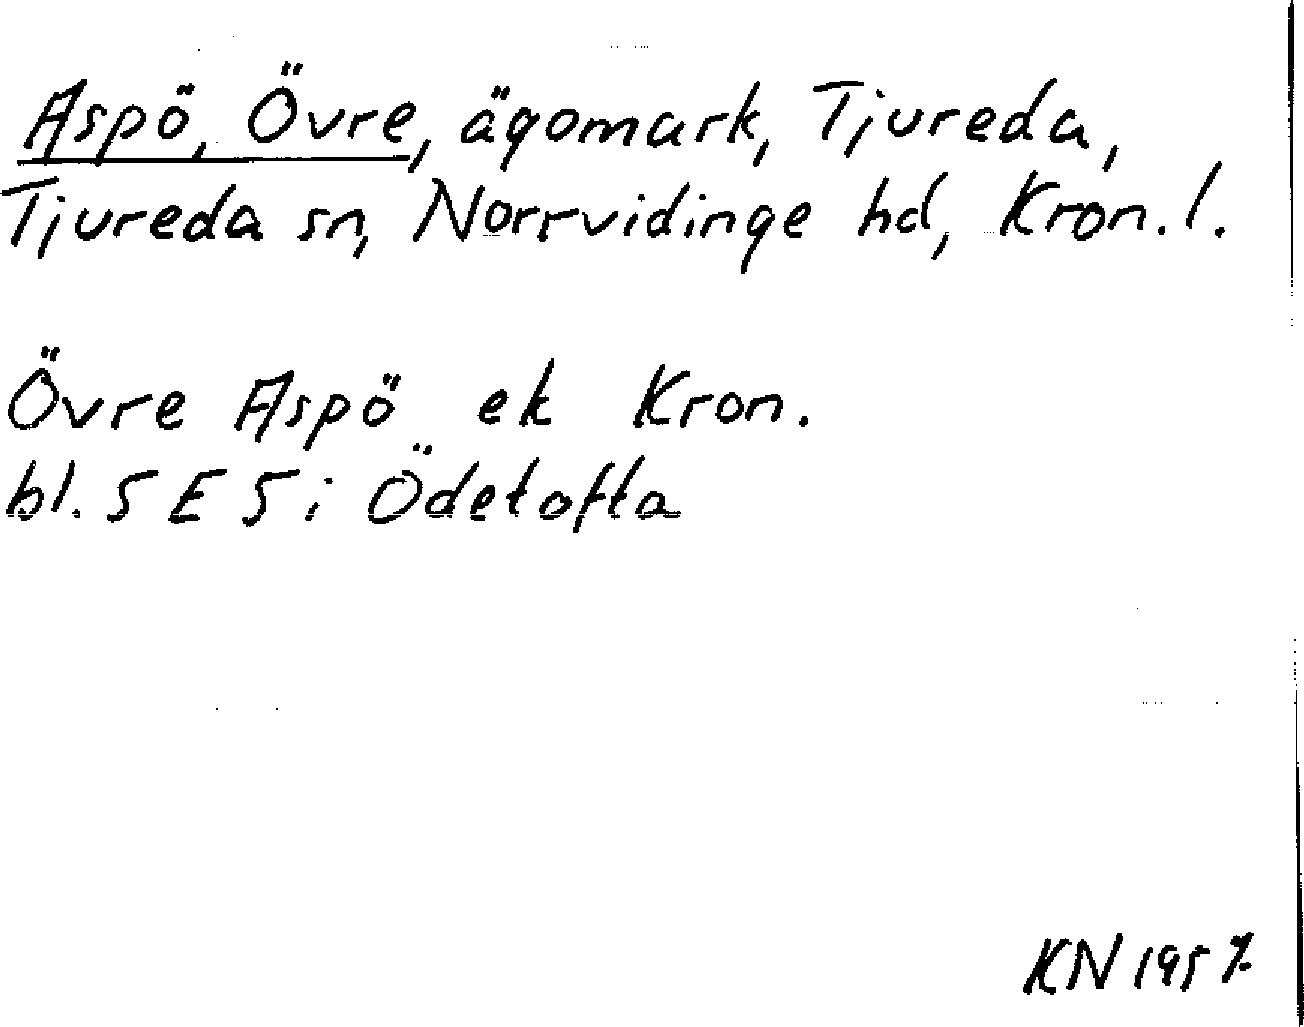 Aspö, Övre, ägomark, Tjureda,
Tjureda sn, Norrvidinge hd, Kron. l.
Övre Aspö ek Kron.
bl. 5 E 5 i Ödetofta
KN 1957